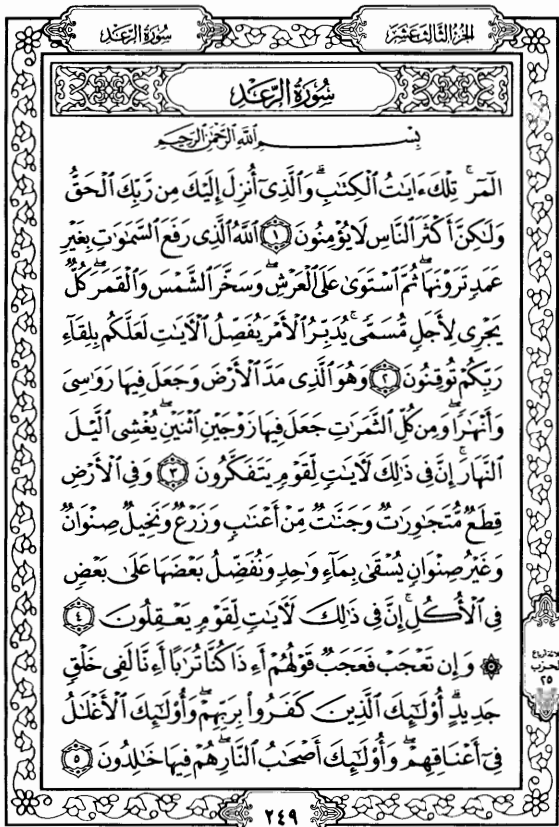 الجزء الثالث عشر
سورة الرعد
سُورَةُ الرَّعْدِ
بِسْمِ ٱللَّهِ ٱلرَّحْمَٰنِ ٱلرَّحِيمِ
الٓمٓر ۚ تِلْكَ ءَايَٰتُ ٱلْكِتَٰبِ ۗ وَٱلَّذِىٓ أُنزِلَ إِلَيْكَ مِن رَّبِّكَ ٱلْحَقُّ
وَلَٰكِنَّ أَكْثَرَ ٱلنَّاسِ لَا يُؤْمِنُونَ ١ ٱللَّهُ ٱلَّذِى رَفَعَ ٱلسَّمَٰوَٰتِ بِغَيْرِ
عَمَدٍ تَرَوْنَهَا ۖ ثُمَّ ٱسْتَوَىٰ عَلَى ٱلْعَرْشِ ۖ وَسَخَّرَ ٱلشَّمْسَ وَٱلْقَمَرَ ۖ كُلٌّ
يَجْرِى لِأَجَلٍ مُّسَمًّى ۚ يُدَبِّرُ ٱلْأَمْرَ يُفَصِّلُ ٱلْءَايَٰتِ لَعَلَّكُم بِلِقَآءِ
رَبِّكُمْ تُوقِنُونَ ٢ وَهُوَ ٱلَّذِى مَدَّ ٱلْأَرْضَ وَجَعَلَ فِيهَا رَوَٰسِىَ
وَأَنْهَٰرًا ۖ وَمِن كُلِّ ٱلثَّمَرَٰتِ جَعَلَ فِيهَا زَوْجَيْنِ ٱثْنَيْنِ ۖ يُغْشِى ٱلَّيْلَ
ٱلنَّهَارَ ۚ إِنَّ فِى ذَٰلِكَ لَءَايَٰتٍ لِّقَوْمٍ يَتَفَكَّرُونَ ٣ وَفِى ٱلْأَرْضِ
قِطَعٌ مُّتَجَٰوِرَٰتٌ وَجَنَّٰتٌ مِّنْ أَعْنَٰبٍ وَزَرْعٌ وَنَخِيلٌ صِنْوَانٌ
وَغَيْرُ صِنْوَانٍ يُسْقَىٰ بِمَآءٍ وَٰحِدٍ وَنُفَضِّلُ بَعْضَهَا عَلَىٰ بَعْضٍ
فِى ٱلْأُكُلِ ۚ إِنَّ فِى ذَٰلِكَ لَءَايَٰتٍ لِّقَوْمٍ يَعْقِلُونَ ٤
۞ وَإِن تَعْجَبْ فَعَجَبٌ قَوْلُهُمْ أَءِذَا كُنَّا تُرَٰبًا أَءِنَّا لَفِى خَلْقٍ
جَدِيدٍ ۗ أُو۟لَٰٓئِكَ ٱلَّذِينَ كَفَرُوا۟ بِرَبِّهِمْ ۖ وَأُو۟لَٰٓئِكَ ٱلْأَغْلَٰلُ
فِىٓ أَعْنَاقِهِمْ ۖ وَأُو۟لَٰٓئِكَ أَصْحَٰبُ ٱلنَّارِ ۖ هُمْ فِيهَا خَٰلِدُونَ ٥
الحزب
٢٥
٢٤٩